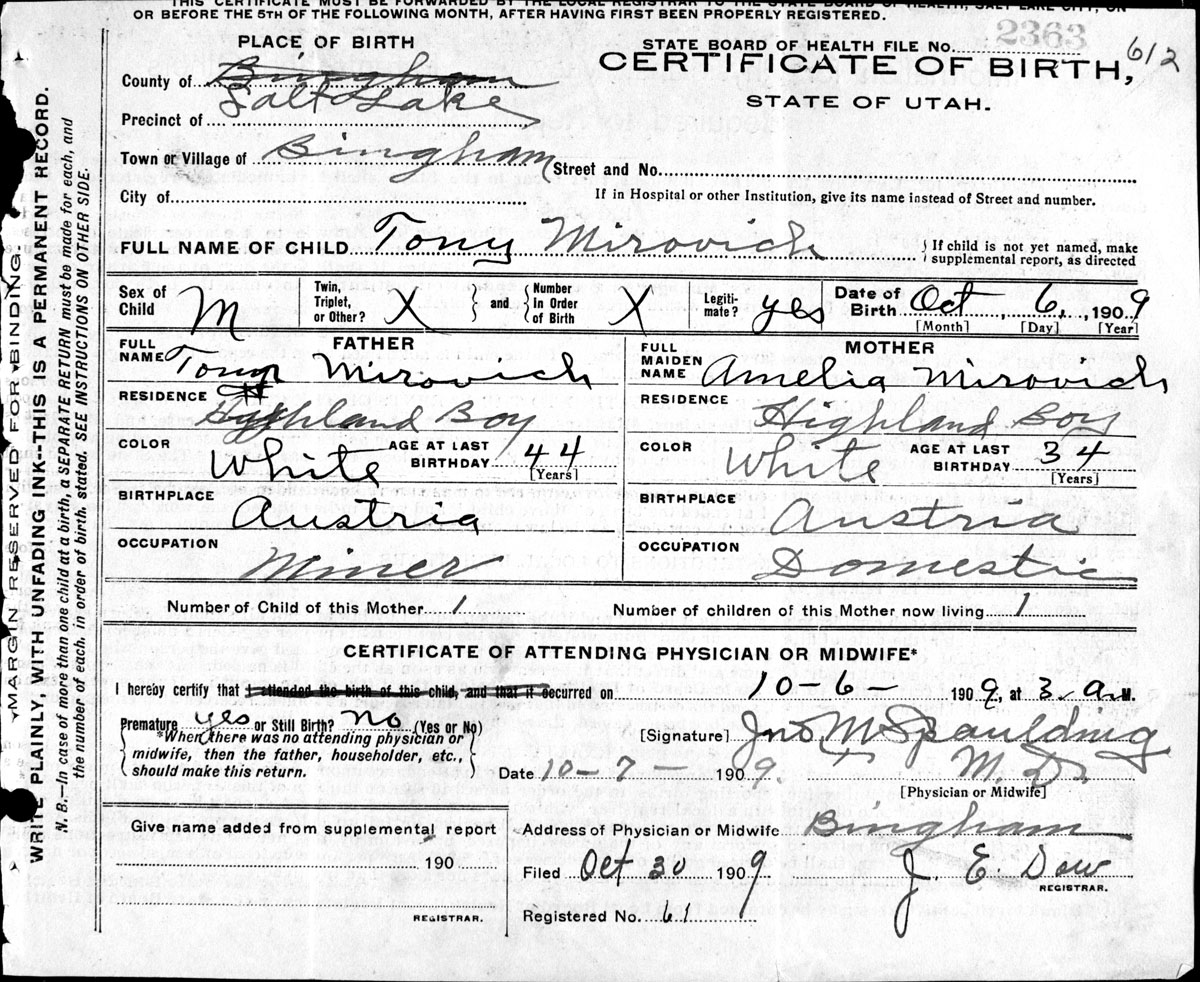 THIS CERTIFICATE MUST BE FORWARDED BY THE LOCAL REGISTRAR TO THE STATE BOARD OF HEALTH, SALT LAKE CITY, ON
OR BEFORE THE 5TH OF THE FOLLOWING MONTH, AFTER HAVING FIRST BEEN PROPERLY REGISTERED.
PLACE OF BIRTH
STATE BOARD OF HEALTH FILE No. 2363
612
CERTIFICATE OF BIRTH,
STATE OF UTAH.
County of Bingham
Salt Lake
Precinct of
Town or Village of Bingham
Street and No.
City of
If in Hospital or other Institution, give its name instead of Street and number.
FULL NAME OF CHILD Tony Mirovich
If child is not yet named, make supplemental report, as directed
Sex of Child M
Twin, Triplet, or Other? X
and
Number In Order of Birth X
Legitimate? yes
Date of Birth Oct 6, 1909
[Month] [Day] [Year]
FATHER
FULL NAME Tony Mirovich
RESIDENCE Highland Boy
COLOR White
AGE AT LAST BIRTHDAY 44
[Years]
BIRTHPLACE Austria
OCCUPATION Miner
MOTHER
FULL MAIDEN NAME Amelia Mirovich
RESIDENCE Highland Boy
COLOR White
AGE AT LAST BIRTHDAY 34
[Years]
BIRTHPLACE Austria
OCCUPATION Domestic
Number of Child of this Mother 1
Number of children of this Mother now living 1
CERTIFICATE OF ATTENDING PHYSICIAN OR MIDWIFE*
I hereby certify that I attended the birth of this child, and that it occurred on 10-6- 1909, at 3 A M.
Premature yes or Still Birth? no (Yes or No)
*When there was no attending physician or
midwife, then the father, householder, etc.,
should make this return.
[Signature] Jno M Spaulding
M. D.
[Physician or Midwife]
Date 10-7- 1909.
Give name added from supplemental report
190
REGISTRAR.
Address of Physician or Midwife Bingham
Filed Oct 30 1909
J. E. Dow
REGISTRAR.
Registered No. 61
MARGIN RESERVED FOR BINDING
WRITE PLAINLY, WITH UNFADING INK--THIS IS A PERMANENT RECORD.
N. B.--In case of more than one child at a birth, a SEPARATE RETURN must be made for each, and
the number of each, in order of birth, stated. SEE INSTRUCTIONS ON OTHER SIDE.